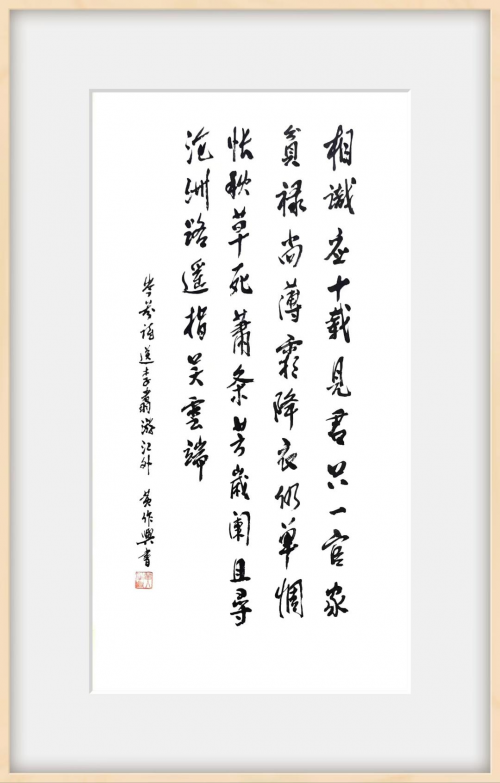 相識应十載見君只一官家
貧禄尚薄霜降衣仍單惆
悵秋草死蕭条芳歲闌且尋
滄洲路遥指吴雲端
岑参詩送李翥游江外 黄作興書